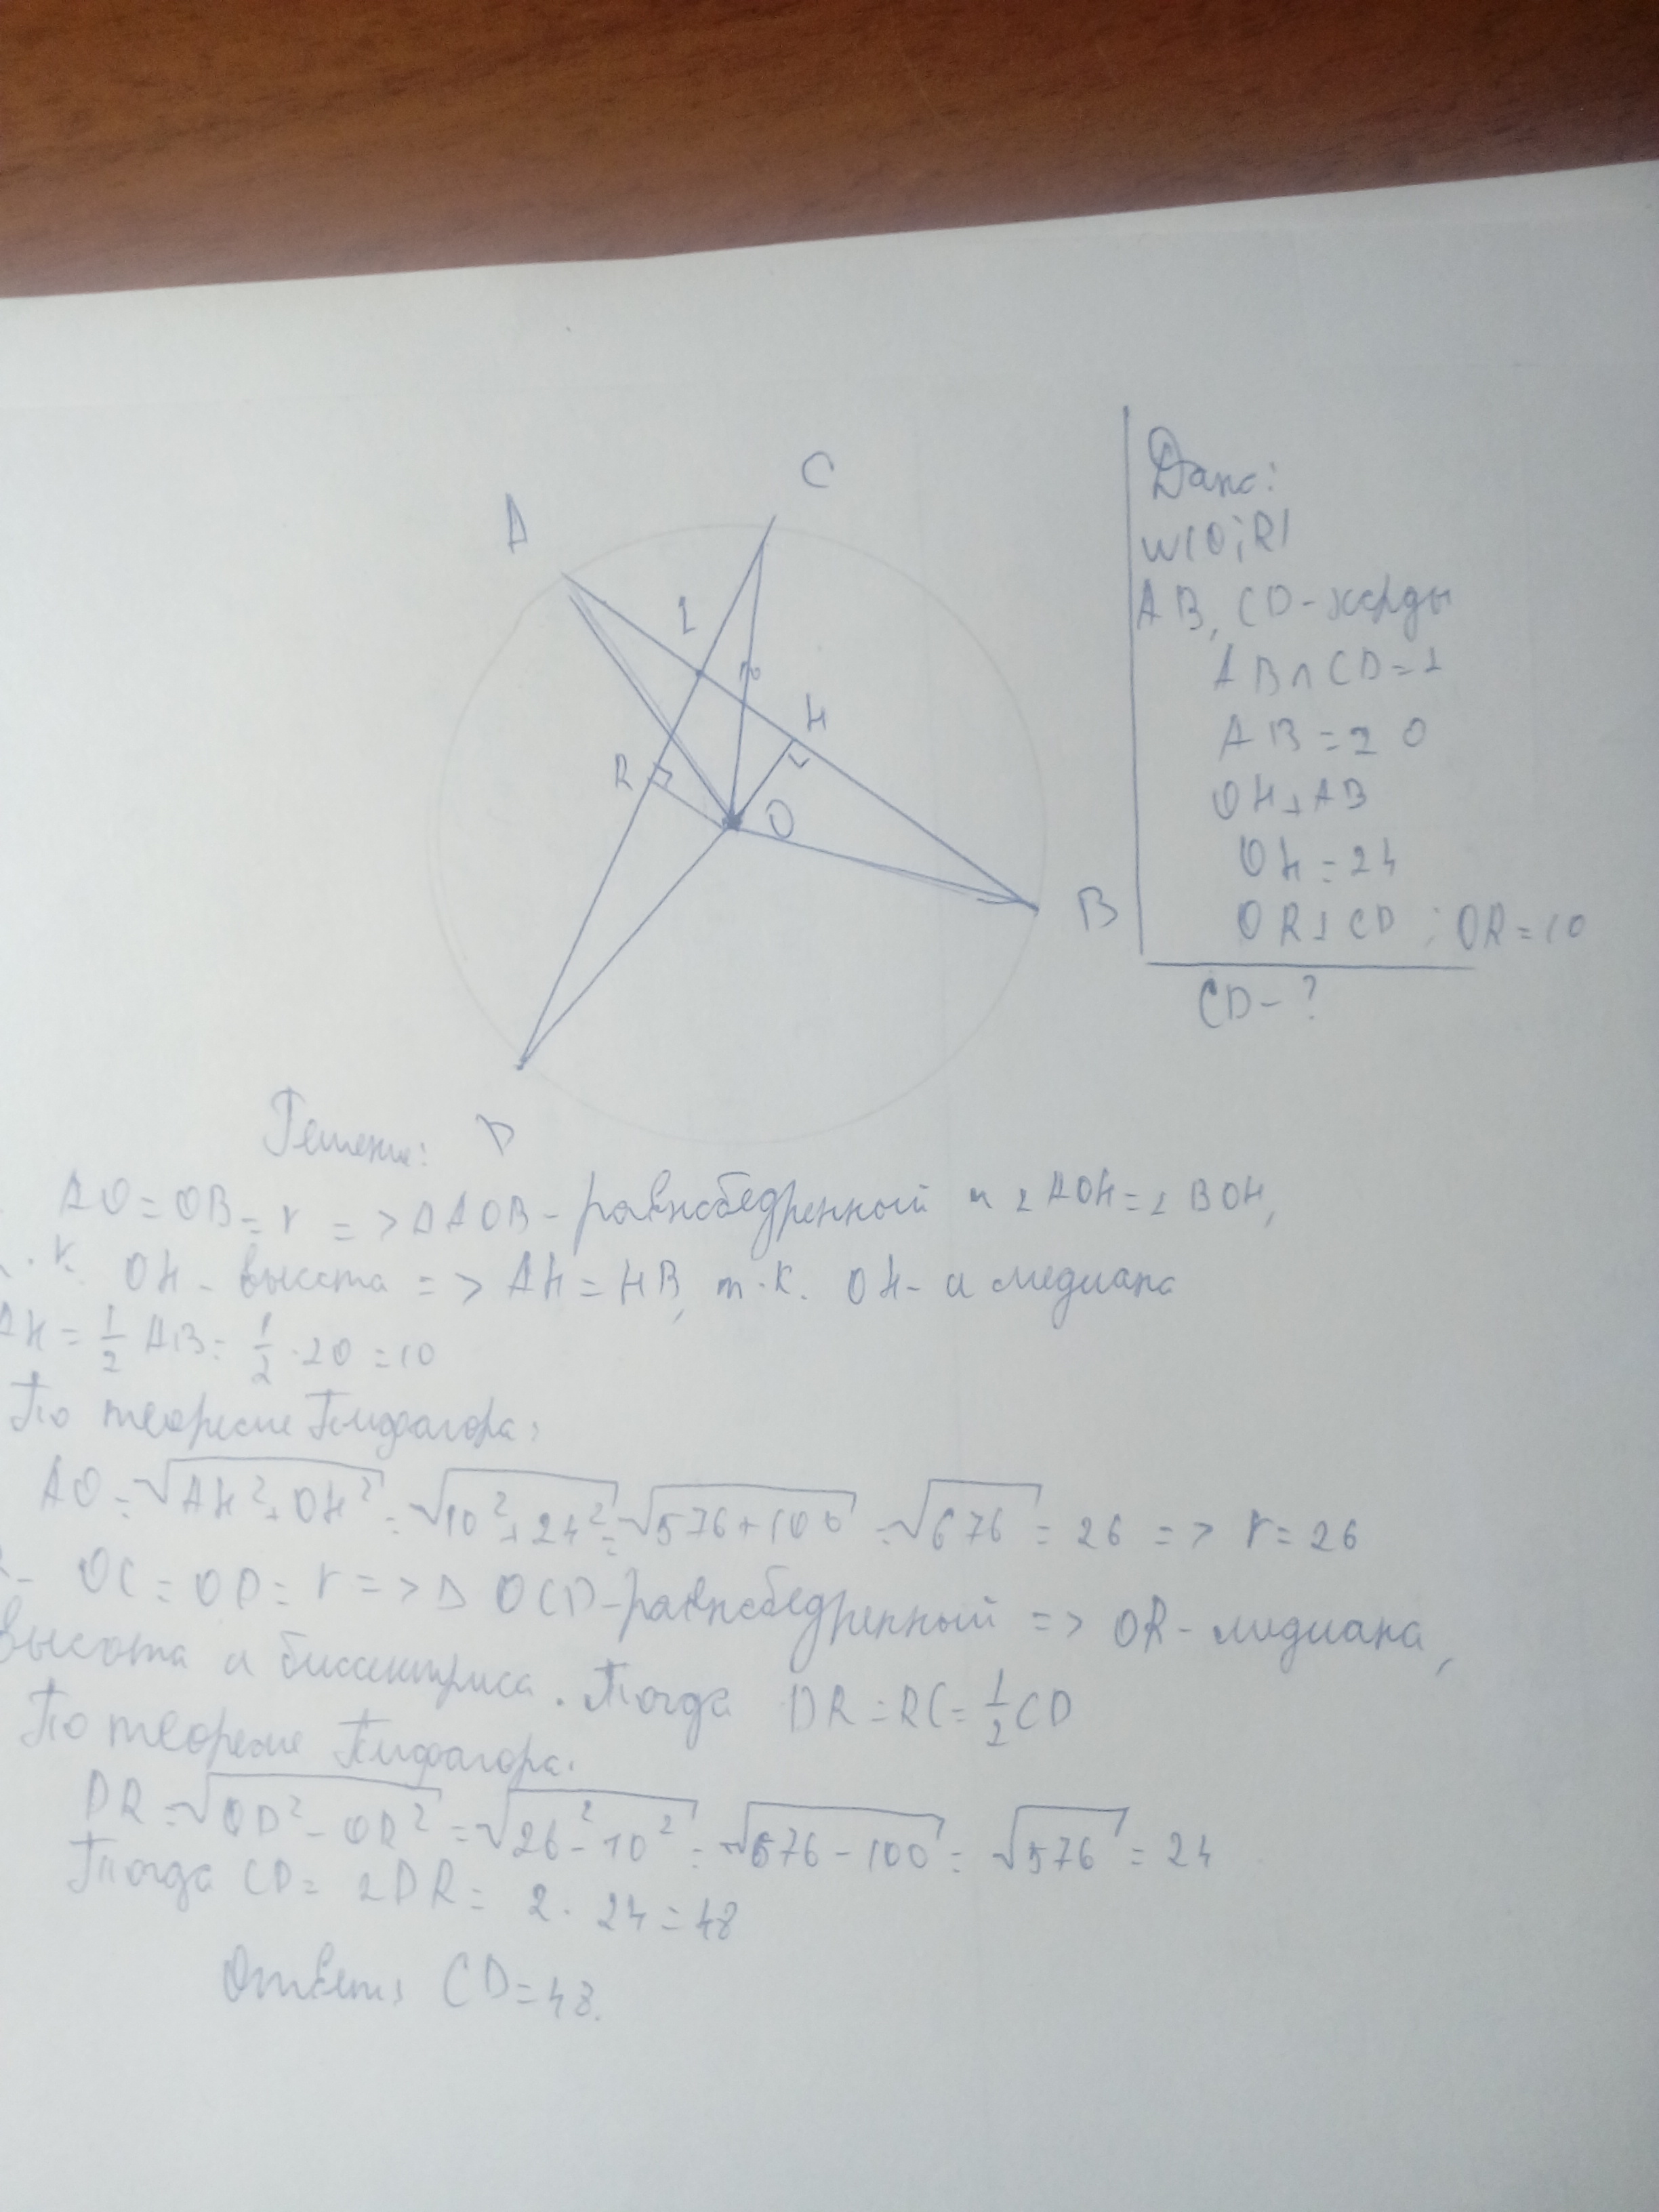 C
A
1
H
R
O
B
D
Дано:
w(O;R)
AB, CD-хорды
AB∩CD=1
AB=20
OH⊥AB
OH=24
OR⊥CD ; OR=10
CD-?
Решение:
AO=OB=r => ΔAOB-равнобедренный и ∠AOH=∠BOH,
т.к. OH-высота => AH=HB, т.к. OH- и медиана
AH=1/2 AB=1/2·20=10
По теореме Пифагора:
AO=√(AH²+OH²)=√(10²+24²)=√(576+100)=√676=26 => r=26
OC=OD=r => Δ OCD-равнобедренный => OR-медиана,
высота и биссектриса. Тогда DR=RC=1/2CD
По теореме Пифагора.
DR=√(OD²-OR²)=√(26²-10²)=√(676-100)=√576=24
Тогда CD=2DR=2·24=48
Ответ: CD=48.